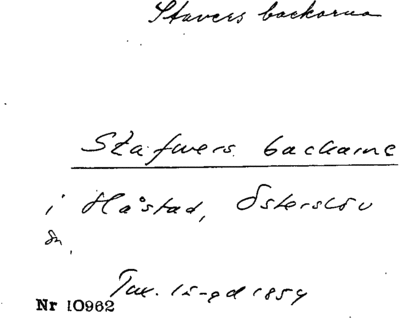 Stavers backarna
Stafwers backarne
i Håstad, Österslöv
sn.
Tax. 15-gd 1854
Nr 10962